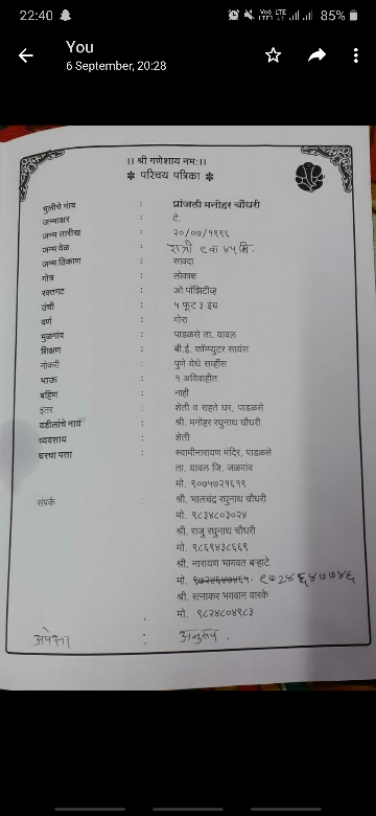 22:40
85%
You
6 September, 20:28
।। श्री गणेशाय नमः।।
✽ परिचय पत्रिका ✽
मुलीचे नांव : प्रांजली मनोहर चौधरी
जन्माक्षर : टे.
जन्म तारीख : २०/०७/१९९६
जन्म वेळ : रात्री ८ क ४५ मि.
जन्म ठिकाण : सावदा
गोत्र : लोकाक्ष
रक्तगट : ओ पॉझिटीव्ह
उंची : ५ फूट ३ इंच
वर्ण : गोरा
मुळगांव : पाडळसे ता. यावल
शिक्षण : बी.ई. कॉम्प्युटर सायंस
नोकरी : पुणे येथे सर्व्हीस
भाऊ : १ अविवाहीत
बहिण : नाही
इतर : शेती व राहते घर, पाडळसे
वडीलांचे नाव : श्री. मनोहर रघुनाथ चौधरी
व्यवसाय : शेती
घरचा पत्ता : स्वामीनारायण मंदिर, पाडळसे
ता. यावल जि. जळगांव
मो. ९०७५७२१६१९
संपर्क : श्री. भालचंद्र रघुनाथ चौधरी
मो. ९८३४८०३०२४
श्री. राजु रघुनाथ चौधरी
मो. ९८६९४३८६६९
श्री. नारायण भागवत बऱ्हाटे
मो. ९७२४६४७७४६
श्री. रत्नाकर भगवान वारके
मो. ९८२४८०४९८३
अपेक्षा : अनुरूप.